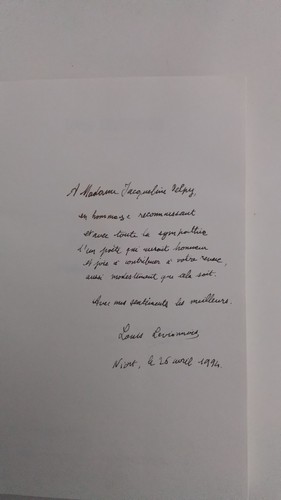 A Madame Jacqueline Delpy,
en hommage reconnaissant
et avec toute la sympathie
d'un poète que serait heureux
à contribuer à votre revue,
aussi modestement que cela soit.
Avec mes sentiments les meilleurs.
Louis
Niort, le 26 avril 1994.